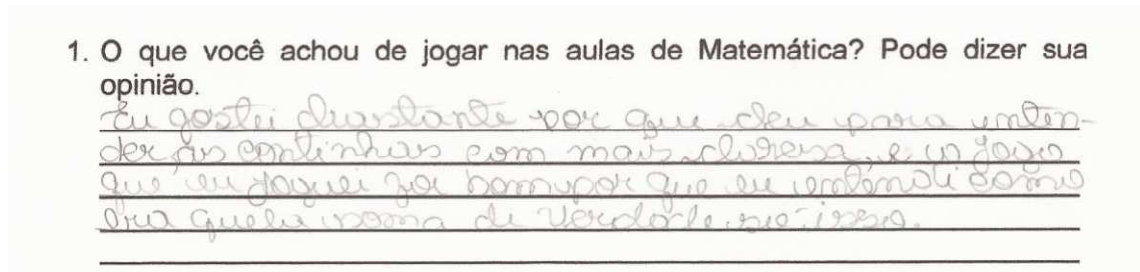 1. O que você achou de jogar nas aulas de Matemática? Pode dizer sua
opinião.
Eu gostei bastante por que deu para enten-
der as continhas com mais clareza, e o jogo
que eu joguei foi bom por que eu entendi como
era aquela soma de verdade, só isso.